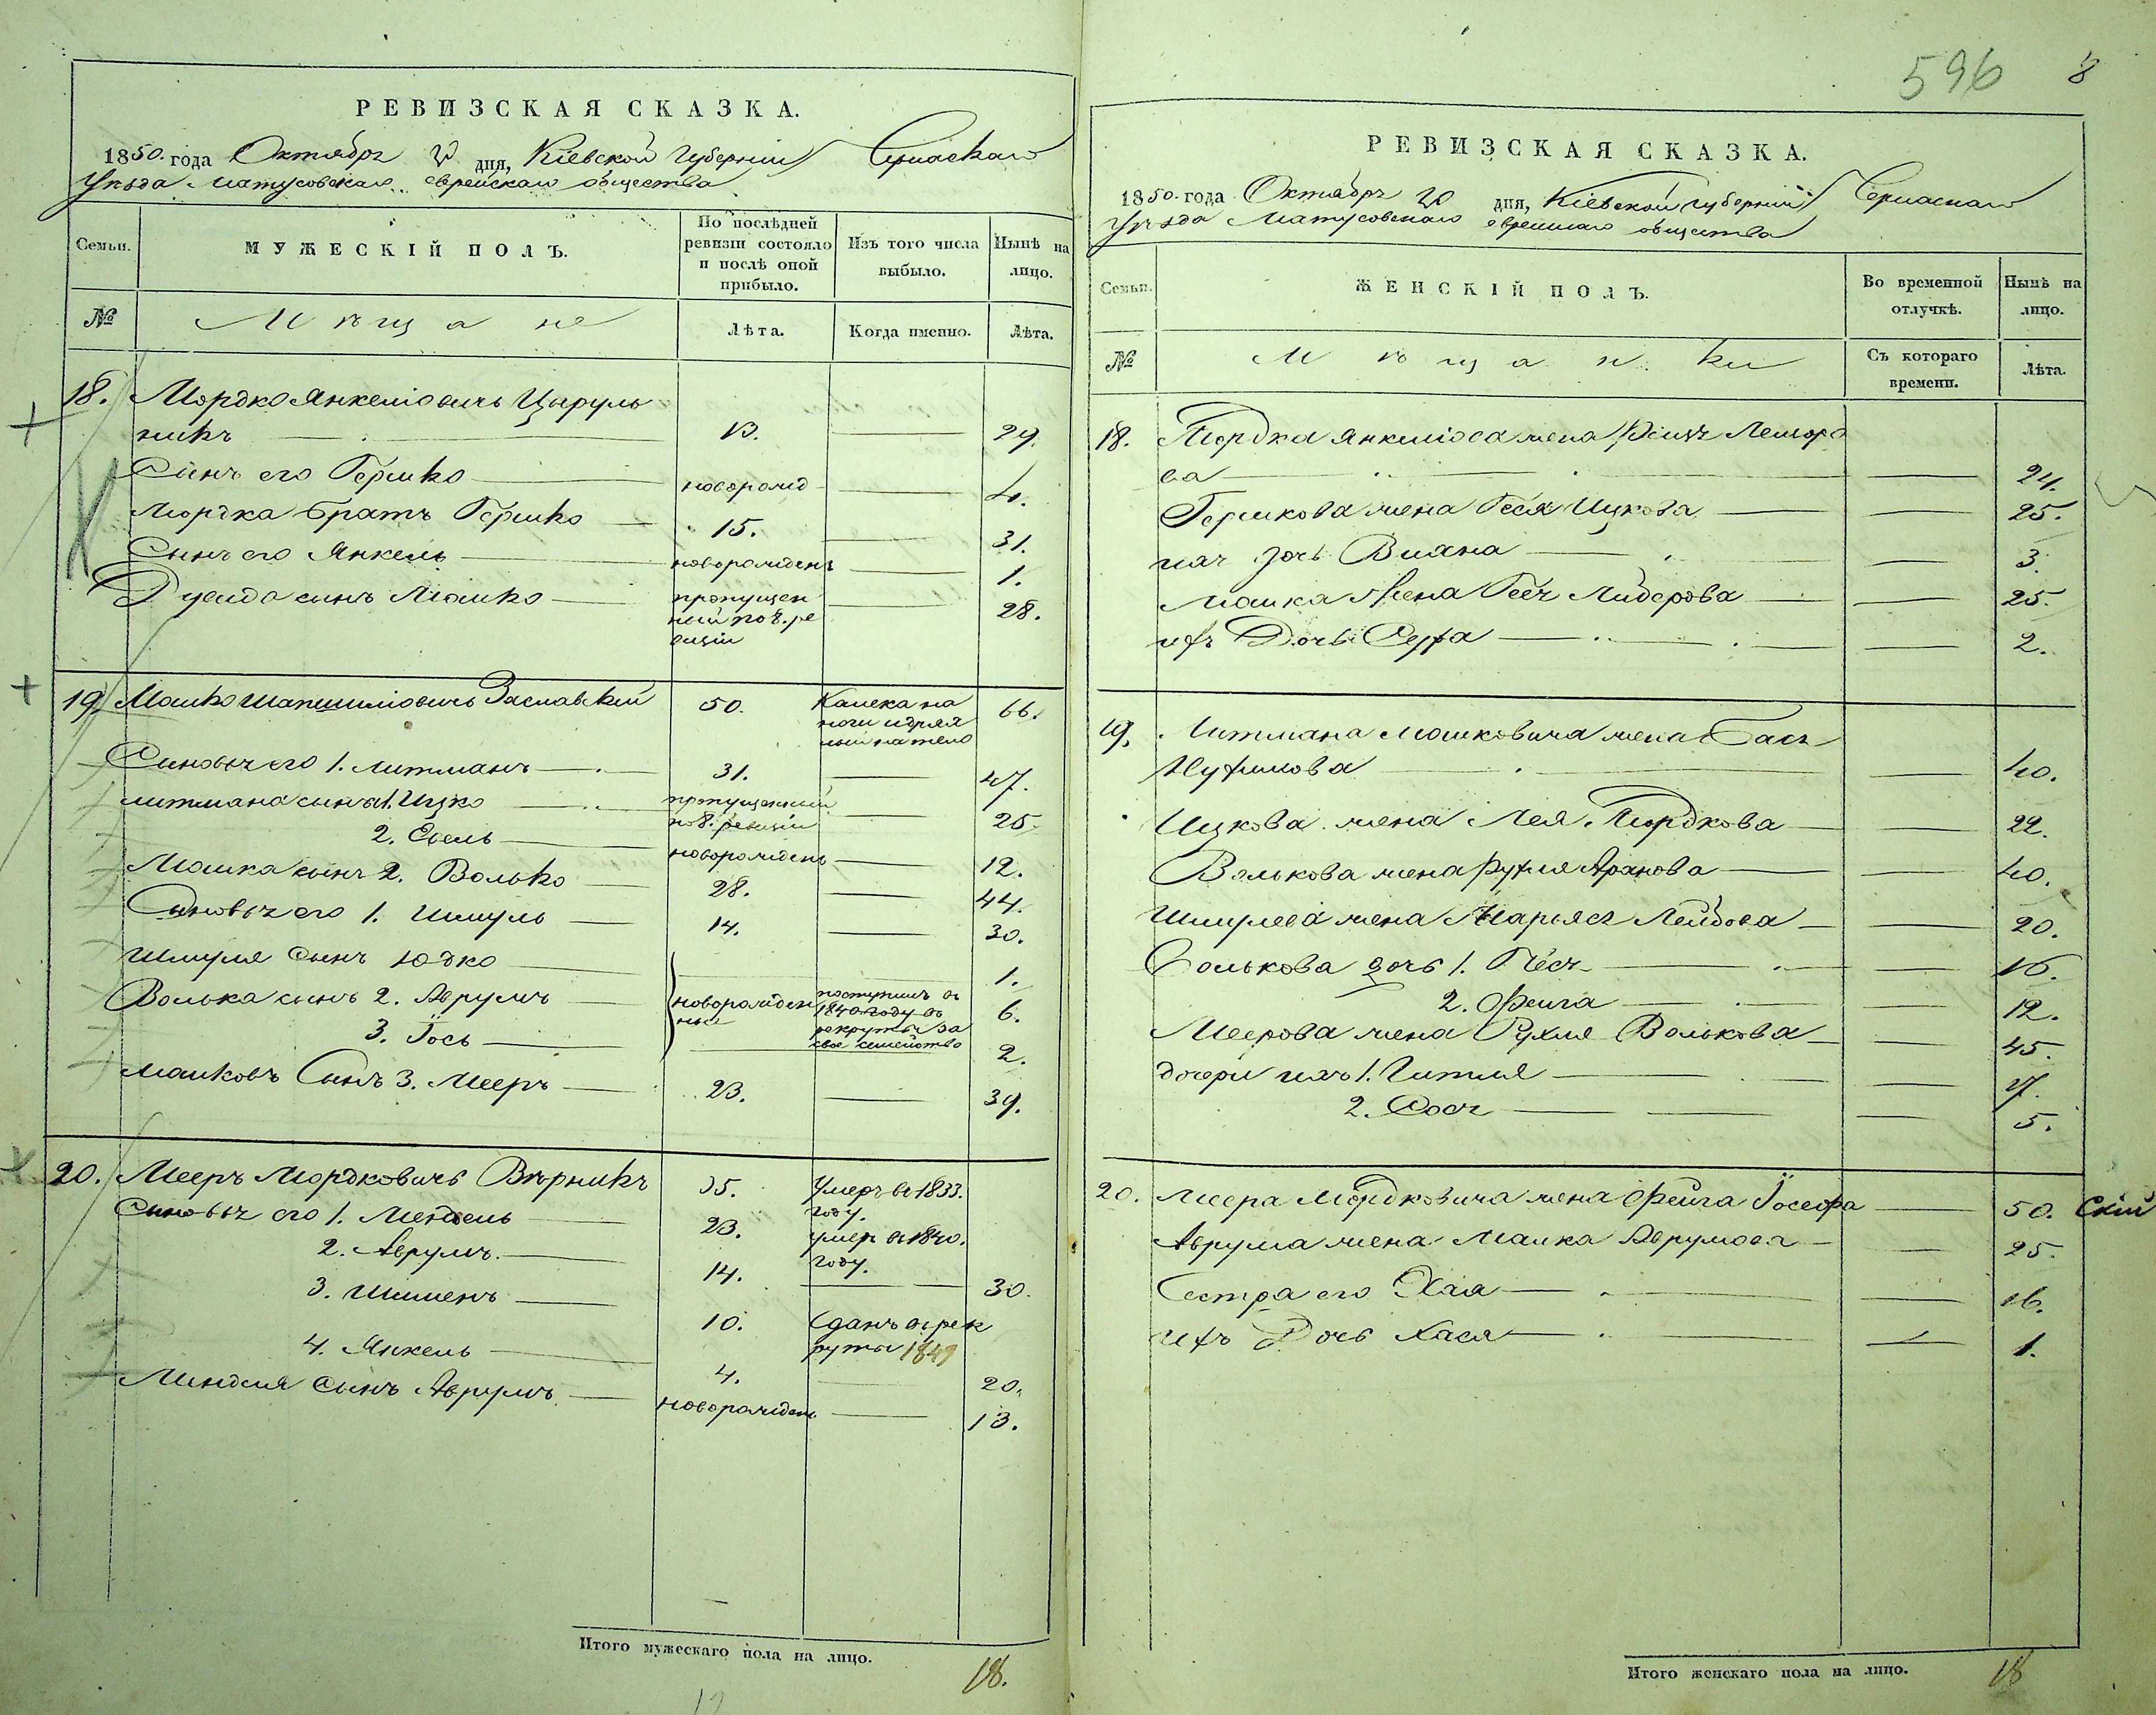 596
8
РЕВИЗСКАЯ СКАЗКА.
1850. года Октября 20 дня, Кіевской Губерніи Черкаскаго
Уѣзда Матусовскаго еврейскаго общества
Семьи.
МУЖЕСКІЙ ПОЛЪ.
По послѣдней ревизіи состояло и послѣ оной прибыло.
Изъ того числа выбыло.
Нынѣ на лицо.
№
Мѣщане
Лѣта.
Когда именно.
Лѣта.
18. Мордко Янкеліовичъ Цыруль
никъ 13. 29.
Сынъ его Гершко новорожд 4.
Мордка братъ Гершко 15. 31.
Сынъ его Янкель новорожденъ 1.
сынъ Мошко пропущен
ный по 8. ре
визіи 28.
19. Мошко Шапшиліовичъ Заславскій 50. Калека на
ноги и
на тело 66.
Сыновья его 1. Литманъ 31. 47.
Литмана сынъ 1. Ицко пропущенный
по 8. ревизіи 25.
2. новорожденъ 12.
Мошка сынъ 2. Волько 28. 44.
Сыновья его 1. Шмуль 14. 30.
Шмуля Сынъ Юдко 1.
Волька сынъ 2. Аврумъ новорожден
ные поступилъ въ
1840 году въ
рекруты за
свое семейство 6.
3. Іось 2.
Мошковъ Сынъ 3. Мееръ 23. 39.
20. Мееръ Мордковичъ Вѣрникъ 35. Умеръ въ 1833.
году.
Сыновья его 1. Мендель 23. умеръ въ 1840.
году.
2. Аврумъ. 14. 30.
3. Шименъ 10. Сданъ въ рек
руты 1849
4. Янкель 4. 20.
Мендля Сынъ Аврумъ новорожденъ 13.
Итого мужескаго пола на лицо. 18.
РЕВИЗСКАЯ СКАЗКА.
1850. года Октября 20 дня, Кіевской Губерніи Черкаскаго
Уѣзда Матусовскаго еврейскаго общества
Семьи.
ЖЕНСКІЙ ПОЛЪ.
Во временной отлучкѣ.
Нынѣ на лицо.
№
Мѣщанки
Съ котораго времени.
Лѣта.
18. Мордка Янкеліова жена Лейзоро
ва 24.
Гершкова жена Геся Ицкова 25.
ихъ дочь 3.
Мошка Жена Лидерова 25.
ихъ Дочь Сура 2.
19. Литмана Мошковича жена Бася
Нухимова 40.
Ицкова жена Лея Мордкова 22.
Волькова жена Рухля Аронова 40.
Шмулева жена Марьяся Лейбова 20.
Волькова дочь 1. Песя 16.
2. Фейга 12.
Меерова жена Рухля Волькова 45.
дочери ихъ 1. Гитля 17.
2. Сося 5.
20. Меера Мордковича жена Фейга Іосефа 50. Скій
Аврума жена Малка Аврумова 25.
Сестра его Хая 16.
ихъ Дочь Хася 1.
Итого женскаго пола на лицо. 18